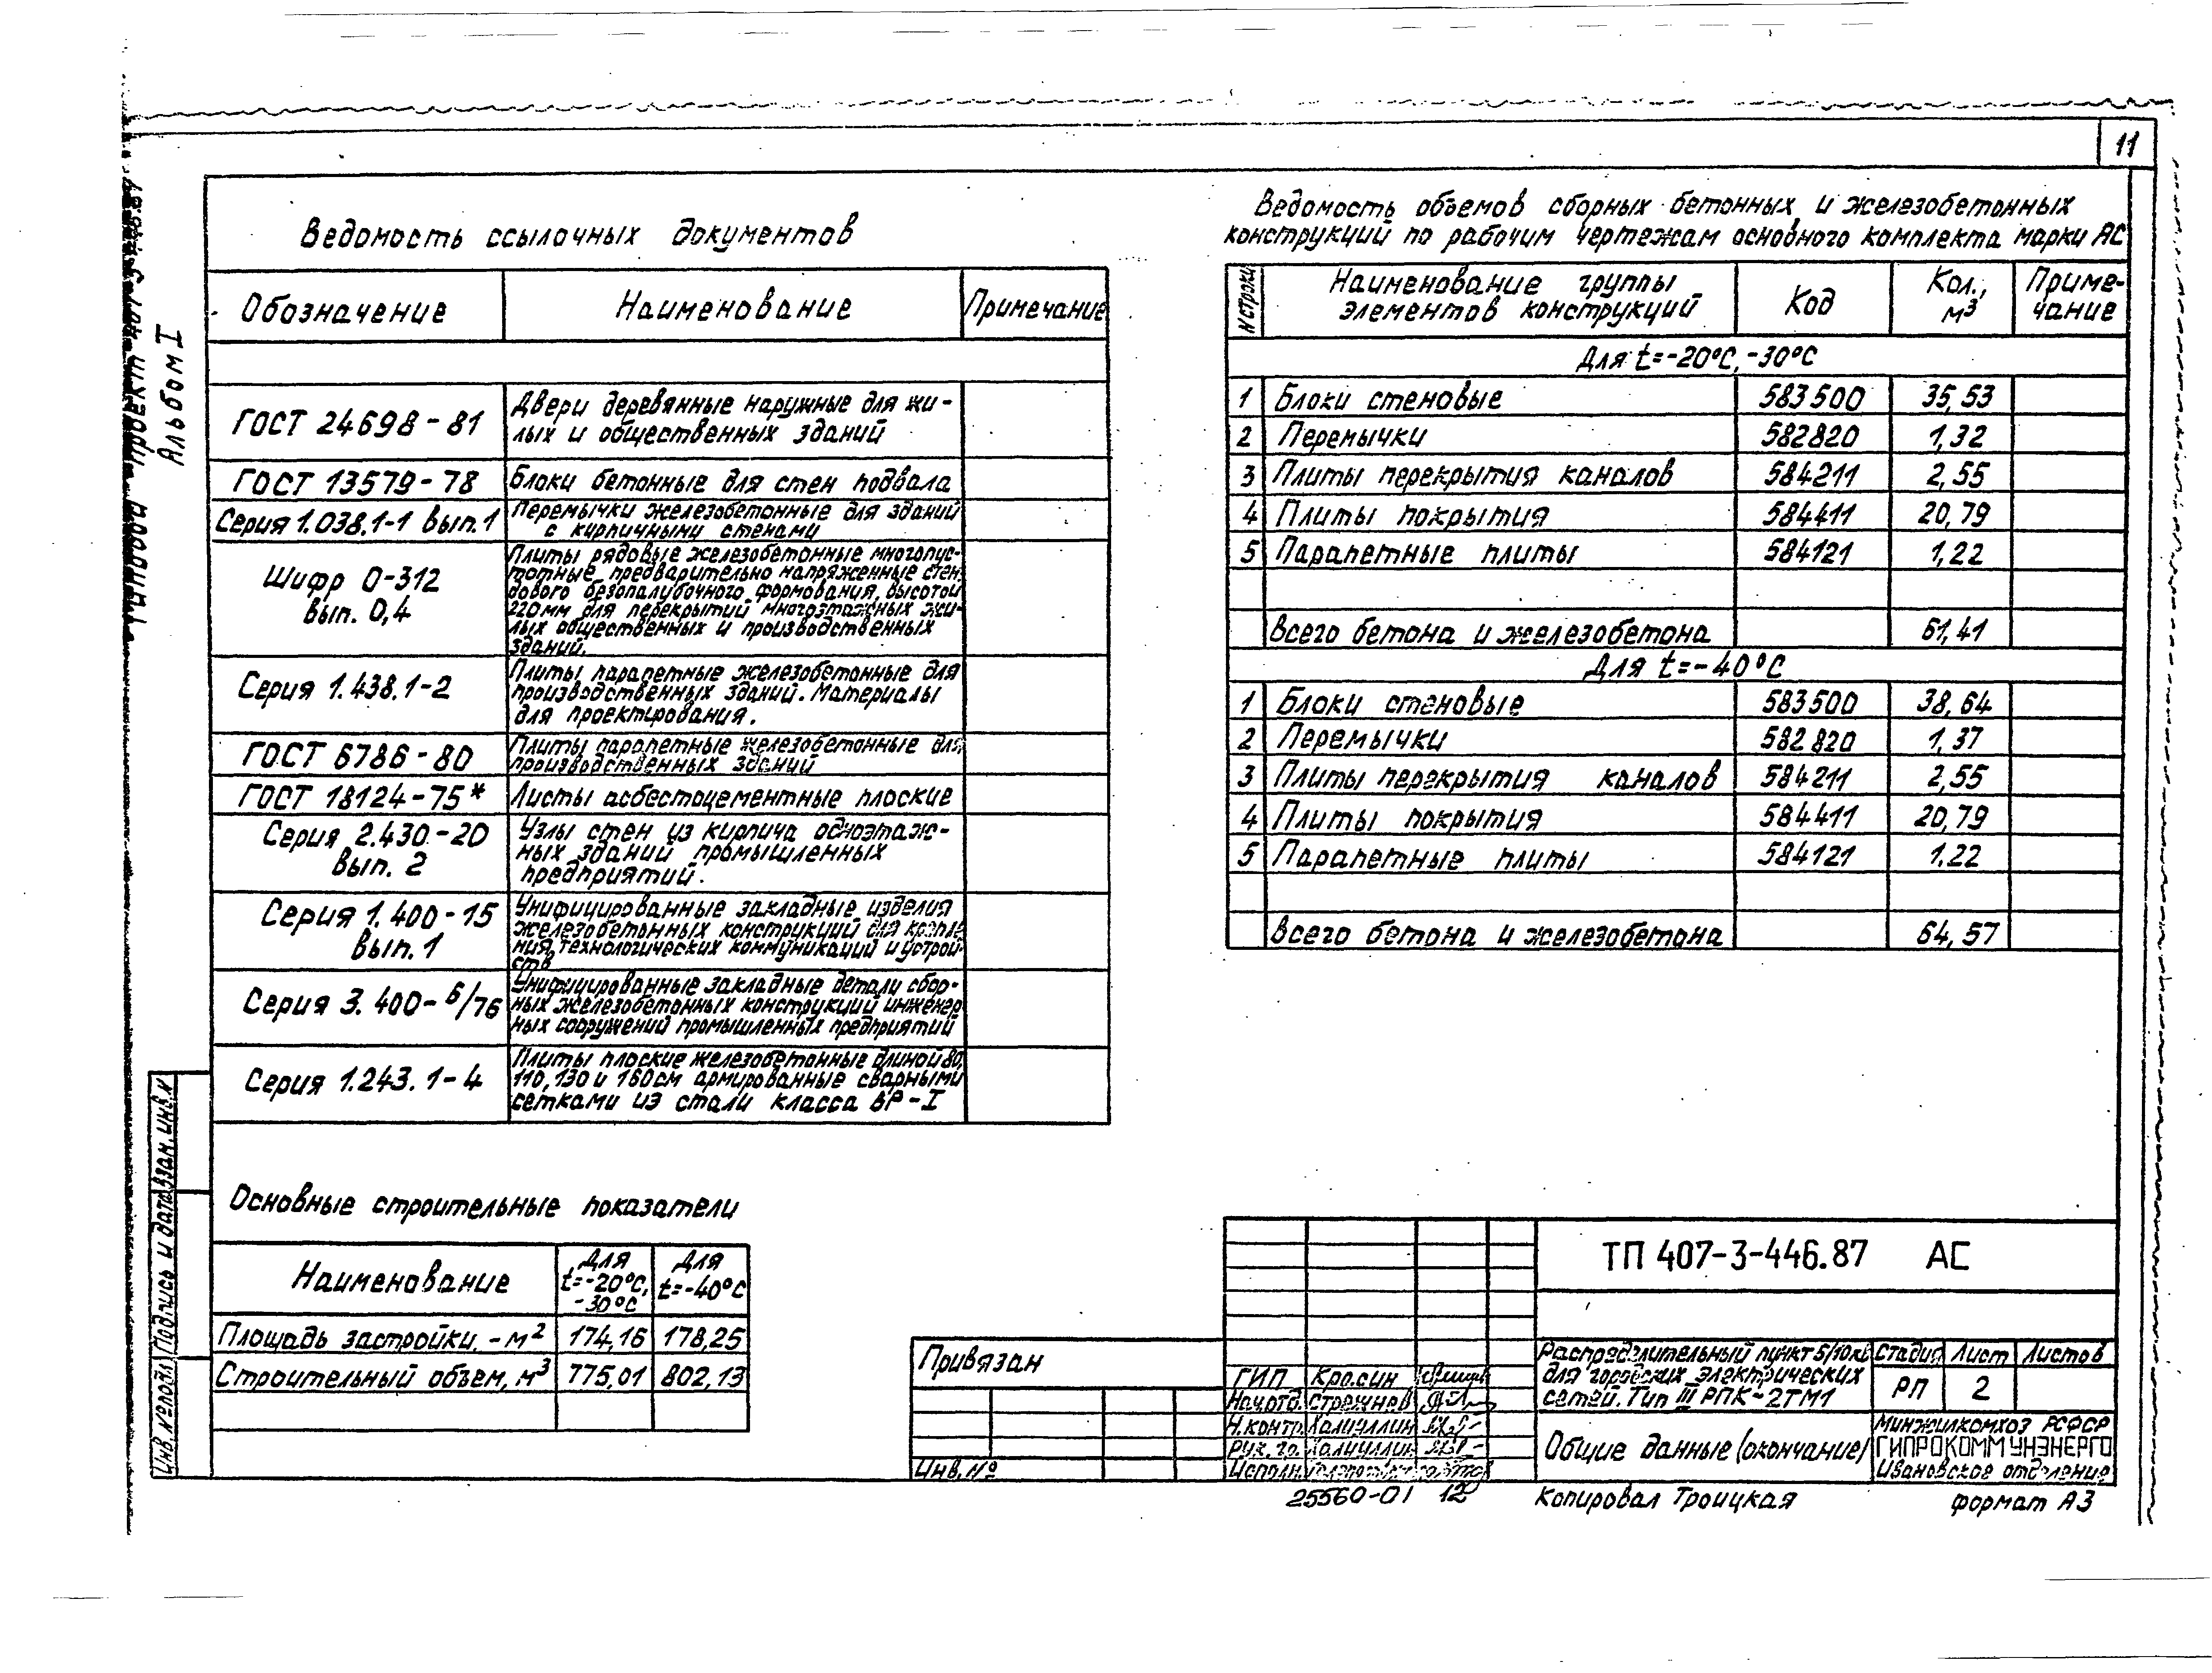 11
Альбом I
Ведомость ссылочных документов
Обозначение Наименование Примечание
ГОСТ 24698-81 Двери деревянные наружные для жи-
лых и общественных зданий
ГОСТ 13579-78 Блоки бетонные для стен подвала
Серия 1.038.1-1 вып.1 Перемычки железобетонные для зданий
с кирпичными стенами
Шифр 0-312
вып. 0,4
Плиты рядовые железобетонные многопус-
тотные предварительно напряженные стен-
дового безопалубочного формования, высотой
220мм для перекрытий многоэтажных жи-
лых общественных и производственных
зданий.
Серия 1.438.1-2
Плиты парапетные железобетонные для
производственных зданий. Материалы
для проектирования.
ГОСТ 6786-80 Плиты парапетные железобетонные для
производственных зданий
ГОСТ 18124-75* Листы асбестоцементные плоские
Серия 2.430-20
вып. 2
Узлы стен из кирпича одноэтаж-
ных зданий промышленных
предприятий.
Серия 1.400-15
вып.1
Унифицированные закладные изделия
железобетонных конструкций для крепле
ния технологических коммуникаций и устрой-
ств
Серия 3.400-6/76
Унифицированные закладные детали сбор-
ных железобетонных конструкций инженер
ных сооружений промышленных предприятий
Серия 1.243.1-4
Плиты плоские железобетонные длиной 80,
110, 130 и 160см армированные сварными
сетками из стали класса ВР-I
Основные строительные показатели
Наименование Для t=-20°С, -30°С Для t=-40°С
Площадь застройки, - м² 174,16 178,25
Строительный объем, м³ 775,01 802,13
Ведомость объемов сборных бетонных и железобетонных
конструкций по рабочим чертежам основного комплекта марки АС
N строки Наименование группы элементов конструкций Код Кол., м³ Приме-чание
Для t=-20°С, -30°С
1 Блоки стеновые 583500 35,53
2 Перемычки 582820 1,32
3 Плиты перекрытия каналов 584211 2,55
4 Плиты покрытия 584411 20,79
5 Парапетные плиты 584121 1,22
Всего бетона и железобетона 61,41
Для t=-40°С
1 Блоки стеновые 583500 38,64
2 Перемычки 582820 1,37
3 Плиты перекрытия каналов 584211 2,55
4 Плиты покрытия 584411 20,79
5 Парапетные плиты 584121 1.22
Всего бетона и железобетона 64,57
ТП 407-3-446.87 АС
Распределительный пункт 6/10кв
для городских электрических
сетей. Тип III РПК-2ТМ1
Стадия Лист Листов
РП 2
Общие данные (окончание)
Минжилкомхоз РСФСР
ГИПРОКОММУНЭНЕРГО
Ивановское отделение
Привязан
Инв. №
ГИП Красин
Нач.отд. Стрежнев
Н.контр. Халиуллин
Рук. гр. Халиуллин
Исполн.
Инв. № подл. Подпись и дата Взам. инв. N
25560-01 12
Копировал Троицкая
формат А3